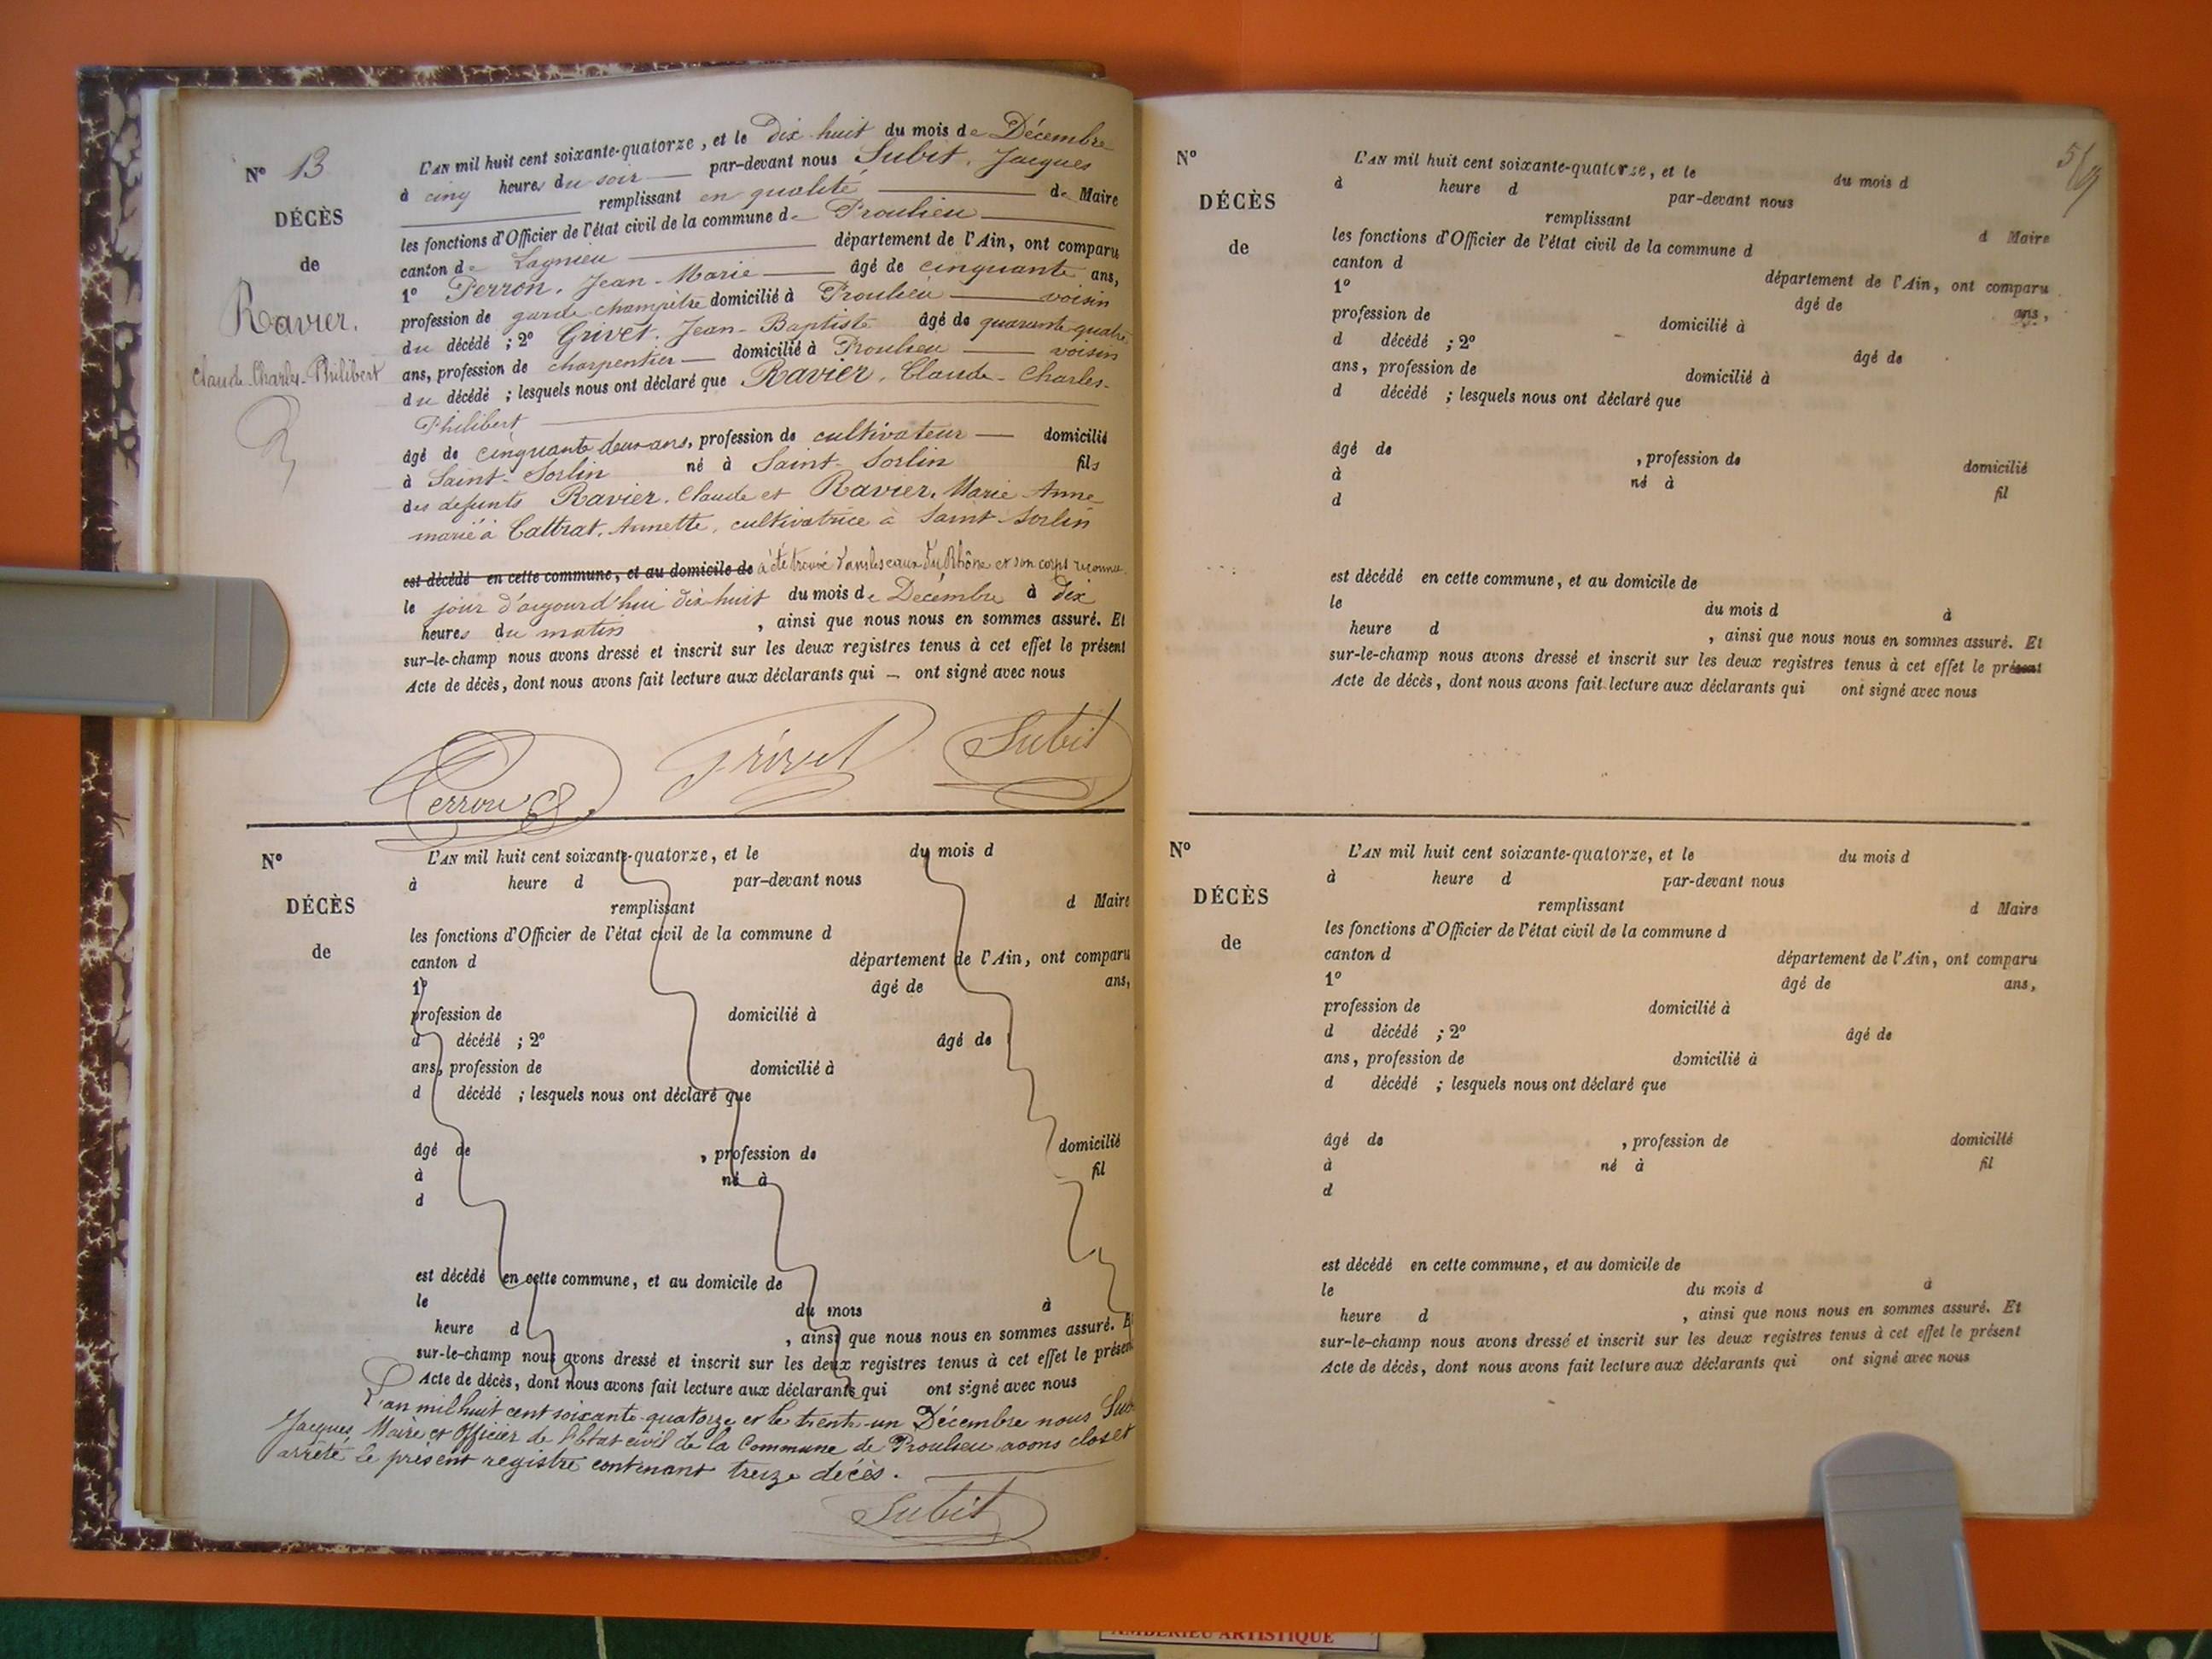 N° 13
DÉCÈS
de
Ravier.
Claude-Charles-Philibert
L'AN mil huit cent soixante-quatorze, et le Dix huit du mois de Décembre
à cinq heures du soir par-devant nous Subit, Jacques
remplissant en qualité de Maire
les fonctions d'Officier de l'état civil de la commune de Proulieu
canton de Lagnieu département de l'Ain, ont comparu
1° Perron, Jean-Marie âgé de cinquante ans,
profession de garde champêtre domicilié à Proulieu voisin
du décédé ; 2° Grivet, Jean-Baptiste âgé de quarante quatre
ans, profession de charpentier domicilié à Proulieu voisin
du décédé ; lesquels nous ont déclaré que Ravier, Claude-Charles-
Philibert
âgé de cinquante deux ans, profession de cultivateur domicilié
à Saint-Sorlin né à Saint-Sorlin fils
des defunts Ravier, Claude et Ravier, Marie Anne
marié à Cattrat, Annette, cultivatrice à Saint-Sorlin
est décédé en cette commune, et au domicile de à été trouvé dans les eaux du Rhône et son corps reconnu
le jour d'aujourd'hui dix-huit du mois de Décembre à Dix
heures du matin , ainsi que nous nous en sommes assuré. Et
sur-le-champ nous avons dressé et inscrit sur les deux registres tenus à cet effet le présent
Acte de décès, dont nous avons fait lecture aux déclarants qui – ont signé avec nous
Perron Grivet Subit
N°
DÉCÈS
de
L'AN mil huit cent soixante-quatorze, et le du mois d
à heure d par-devant nous
remplissant d Maire
les fonctions d'Officier de l'état civil de la commune d
canton d département de l'Ain, ont comparu
1° âgé de ans,
profession de domicilié à
d décédé ; 2° âgé de
ans, profession de domicilié à
d décédé ; lesquels nous ont déclaré que
âgé de , profession de domicilié
à né à fil
d
est décédé en cette commune, et au domicile de
le du mois à
heure d , ainsi que nous nous en sommes assuré. Et
sur-le-champ nous avons dressé et inscrit sur les deux registres tenus à cet effet le présent
Acte de décès, dont nous avons fait lecture aux déclarants qui ont signé avec nous
L'an mil huit cent soixante-quatorze et le trente-un Décembre nous Subit
Jacques, Maire et Officier de l'Etat civil de la Commune de Proulieu avons clos et
arrêté le présent registre contenant treize décès.
Subit
N°
DÉCÈS
de
L'AN mil huit cent soixante-quatorze, et le du mois d
à heure d par-devant nous
remplissant d Maire
les fonctions d'Officier de l'état civil de la commune d
canton d département de l'Ain, ont comparu
1° âgé de ans,
profession de domicilié à
d décédé ; 2° âgé de
ans, profession de domicilié à
d décédé ; lesquels nous ont déclaré que
âgé de , profession de domicilié
à né à fil
d
est décédé en cette commune, et au domicile de
le du mois d à
heure d , ainsi que nous nous en sommes assuré. Et
sur-le-champ nous avons dressé et inscrit sur les deux registres tenus à cet effet le présent
Acte de décès, dont nous avons fait lecture aux déclarants qui ont signé avec nous
N°
DÉCÈS
de
L'AN mil huit cent soixante-quatorze, et le du mois d
à heure d par-devant nous
remplissant d Maire
les fonctions d'Officier de l'état civil de la commune d
canton d département de l'Ain, ont comparu
1° âgé de ans,
profession de domicilié à
d décédé ; 2° âgé de
ans, profession de domicilié à
d décédé ; lesquels nous ont déclaré que
âgé de , profession de domicilié
à né à fil
d
est décédé en cette commune, et au domicile de
le du mois d à
heure d , ainsi que nous nous en sommes assuré. Et
sur-le-champ nous avons dressé et inscrit sur les deux registres tenus à cet effet le présent
Acte de décès, dont nous avons fait lecture aux déclarants qui ont signé avec nous
AMBERIEU ARTISTIQUE